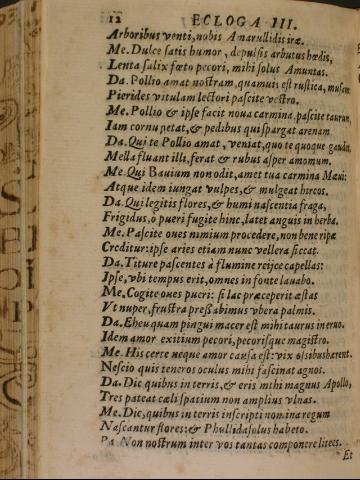 12 ECLOGA III.
Arboribus venti, nobis Amarullidis iræ.
Me. Dulce satis humor, depulsis arbutus hœdis,
Lenta salix fœto pecori, mihi solus Amuntas.
Da. Pollio amat nostram, quamuis est rustica, musam
Pierides vitulam lectori pascite vestro.
Me. Pollio & ipse facit noua carmina, pascite taurum,
Iam cornu petat, & pedibus qui spargat arenam
Da. Qui te Pollio amat, veniat, quo te quoque gaudet.
Mella fluant illi, ferat & rubus asper amomum.
Me. Qui Bauium non odit, amet tua carmina Mæui:
Atque idem iungat vulpes, & mulgeat hircos.
Da. Qui legitis flores, & humi nascentia fraga,
Frigidus, ô pueri fugite hinc, latet anguis in herba.
Me. Pascite oues nimium procedere, non bene ripæ
Creditur: ipse aries etiam nunc vellera siccat.
Da. Titure pascentes à flumine reijce capellas:
Ipse, vbi tempus erit, omnes in fonte lauabo.
Me. Cogite oues pueri: si lac præceperit æstas
Vt nuper, frustra pressabimus vbera palmis.
Da. Eheu quam pingui macer est mihi taurus in eruo.
Idem amor exitium pecori, pecorisque magistro.
Me. His certe neque amor causa est: vix ossibus hærent.
Nescio quis teneros oculus mihi fascinat agnos.
Da. Dic quibus in terris, & eris mihi magnus Apollo,
Tres pateat cæli spatium non amplius vlnas.
Me. Dic, quibus in terris inscripti nomina regum
Nascantur flores: & Phullida solus habeto.
Pa. Non nostrum inter vos tantas componere lites.
Et